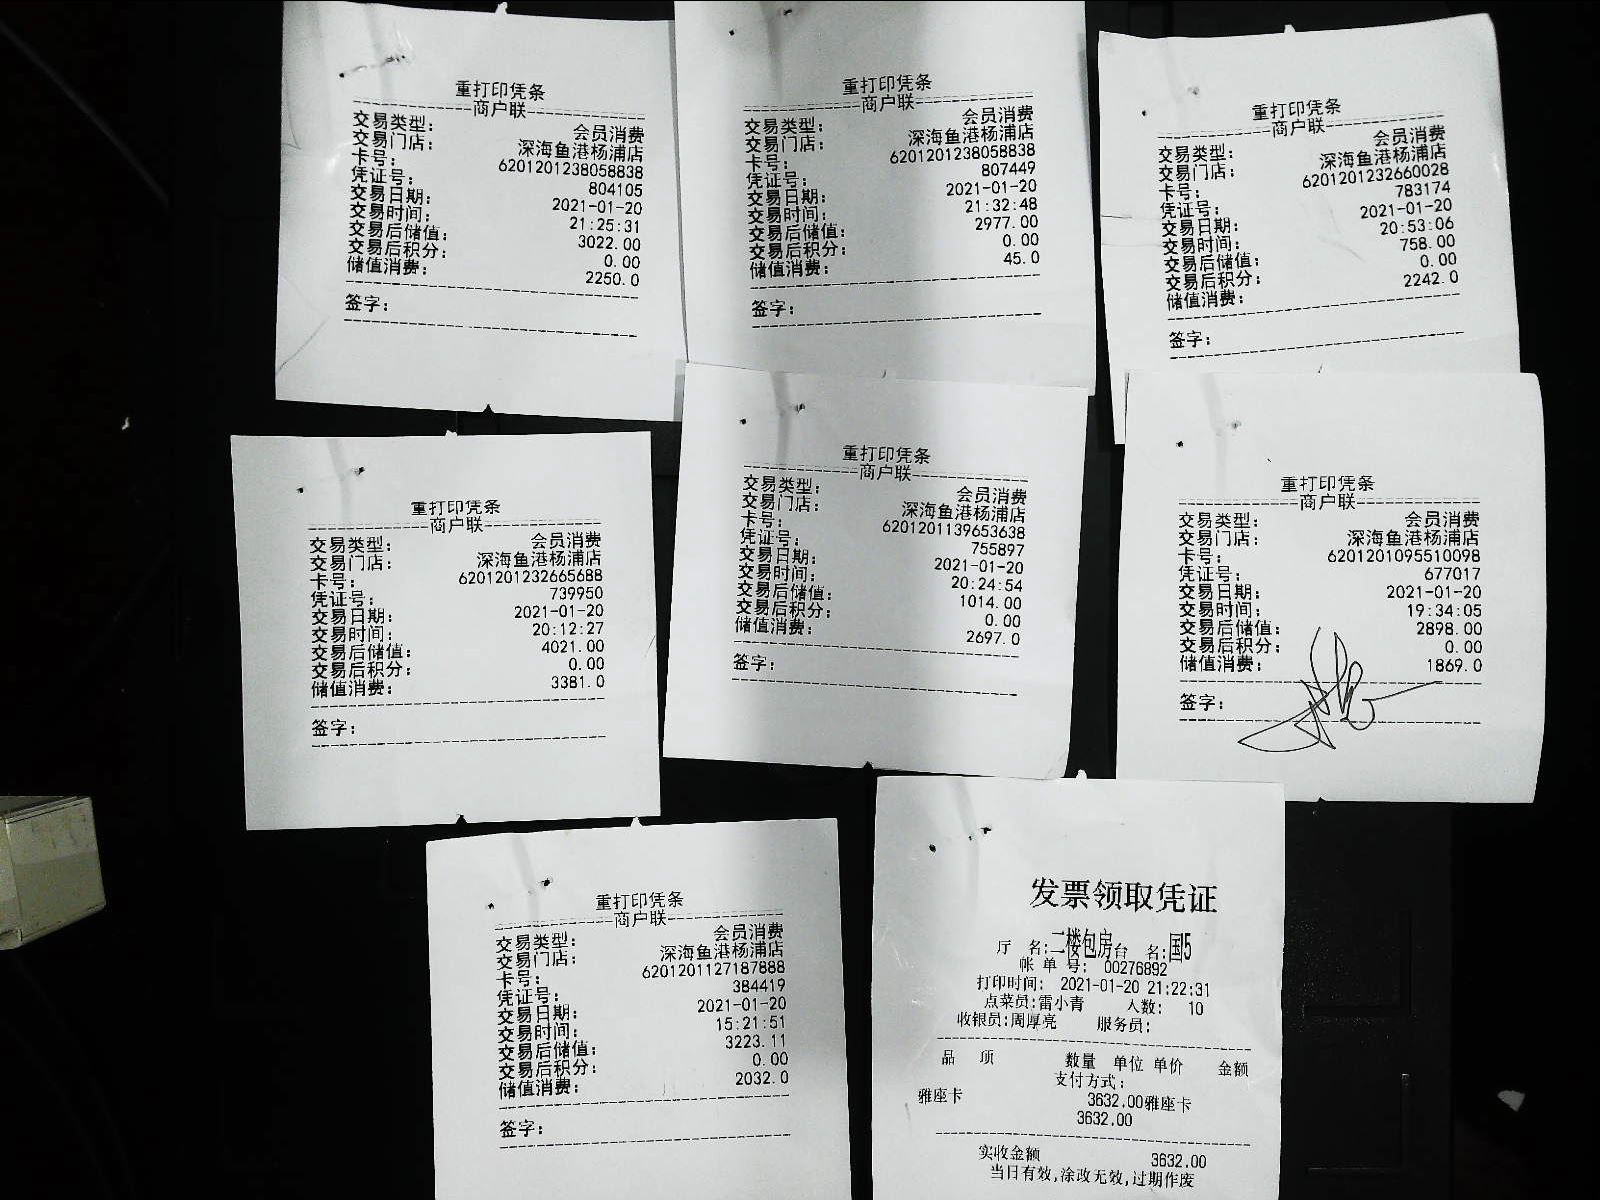 重打印凭条
商户联
交易类型： 会员消费
交易门店： 深海鱼港杨浦店
卡号： 6201201238058838
凭证号： 804105
交易日期： 2021-01-20
交易时间： 21:25:31
交易后储值： 3022.00
交易后积分： 0.00
储值消费： 2250.0
签字：
重打印凭条
商户联
交易类型： 会员消费
交易门店： 深海鱼港杨浦店
卡号： 6201201238058838
凭证号： 807449
交易日期： 2021-01-20
交易时间： 21:32:48
交易后储值： 2977.00
交易后积分： 0.00
储值消费： 45.0
签字：
重打印凭条
商户联
交易类型： 会员消费
交易门店： 深海鱼港杨浦店
卡号： 6201201232660028
凭证号： 783174
交易日期： 2021-01-20
交易时间： 20:53:06
交易后储值： 758.00
交易后积分： 0.00
储值消费： 2242.0
签字：
重打印凭条
商户联
交易类型： 会员消费
交易门店： 深海鱼港杨浦店
卡号： 6201201232665688
凭证号： 739950
交易日期： 2021-01-20
交易时间： 20:12:27
交易后储值： 4021.00
交易后积分： 0.00
储值消费： 3381.0
签字：
重打印凭条
商户联
交易类型： 会员消费
交易门店： 深海鱼港杨浦店
卡号： 6201201139653638
凭证号： 755897
交易日期： 2021-01-20
交易时间： 20:24:54
交易后储值： 1014.00
交易后积分： 0.00
储值消费： 2697.0
签字：
重打印凭条
商户联
交易类型： 会员消费
交易门店： 深海鱼港杨浦店
卡号： 6201201095510098
凭证号： 677017
交易日期： 2021-01-20
交易时间： 19:34:05
交易后储值： 2898.00
交易后积分： 0.00
储值消费： 1869.0
签字：
重打印凭条
商户联
交易类型： 会员消费
交易门店： 深海鱼港杨浦店
卡号： 6201201127187888
凭证号： 384419
交易日期： 2021-01-20
交易时间： 15:21:51
交易后储值： 3223.11
交易后积分： 0.00
储值消费： 2032.0
签字：
发票领取凭证
厅 名:二楼包房台 名:国5
帐 单 号: 00276892
打印时间: 2021-01-20 21:22:31
点菜员:雷小青 人数: 10
收银员:周厚亮 服务员:
品 项 数量 单位 单价 金额
支付方式:
雅座卡 3632.00雅座卡
3632.00
实收金额 3632.00
当日有效,涂改无效,过期作废